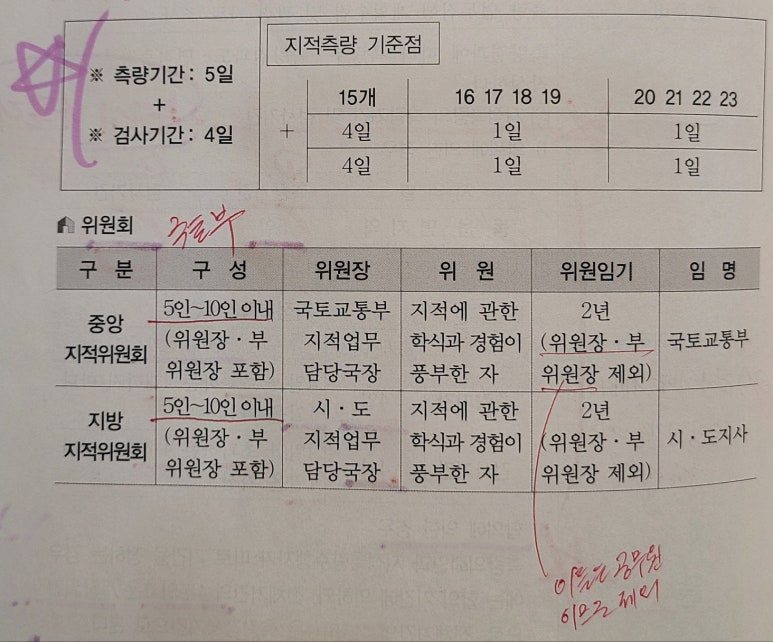 지적측량 기준점
※ 측량기간 : 5일
+
※ 검사기간 : 4일
15개 16 17 18 19 20 21 22 23
+ 4일 1일 1일
4일 1일 1일
위원회
국토부
구 분 구 성 위원장 위 원 위원임기 임 명
중앙
지적위원회
5인~10인 이내
(위원장 · 부
위원장 포함)
국토교통부
지적업무
담당국장
지적에 관한
학식과 경험이
풍부한 자
2년
(위원장 · 부
위원장 제외)
국토교통부
지방
지적위원회
5인~10인 이내
(위원장 · 부
위원장 포함)
시 · 도
지적업무
담당국장
지적에 관한
학식과 경험이
풍부한 자
2년
(위원장 · 부
위원장 제외)
시 · 도지사
이들은 공무원
이므로 제외